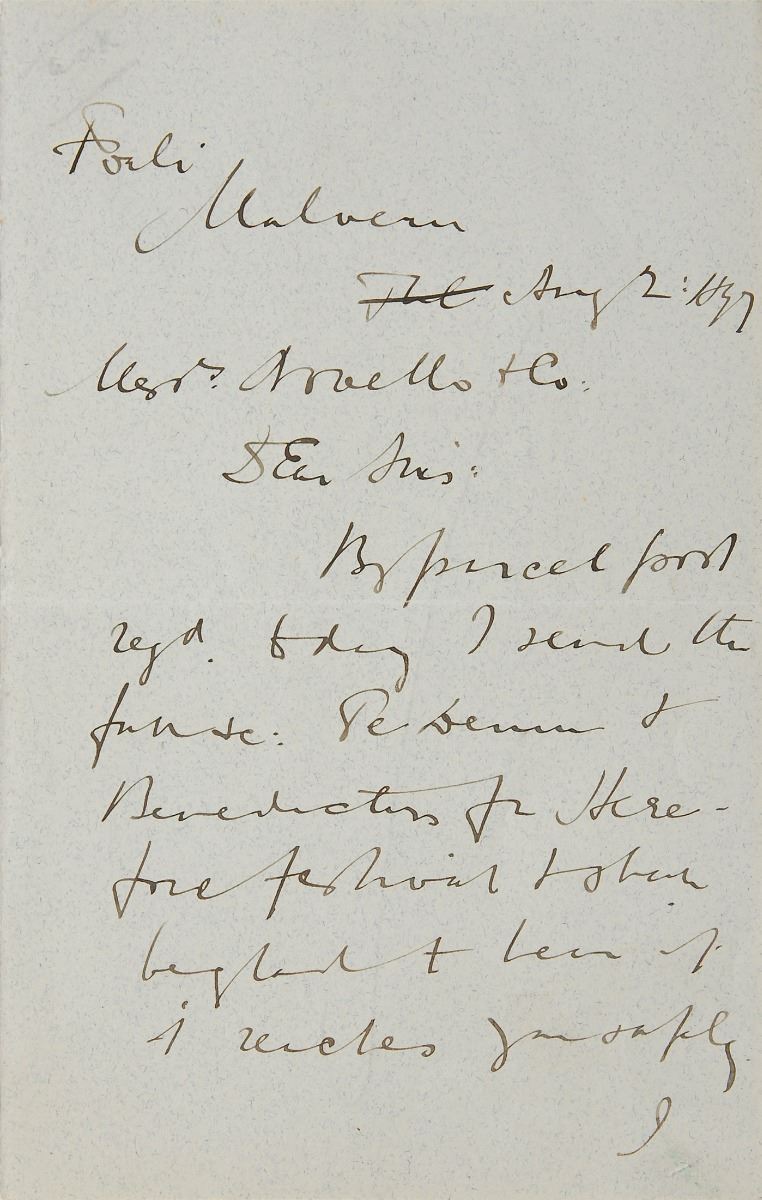 Forli
Malvern
Aug 2: 1897
Messrs. Novello & Co:
Dear Sirs:
By parcel post
regd. today I send the
full sc: Te Deum &
Benedictus for Here-
ford festival & shall
be glad to hear if
it reaches you safely
I